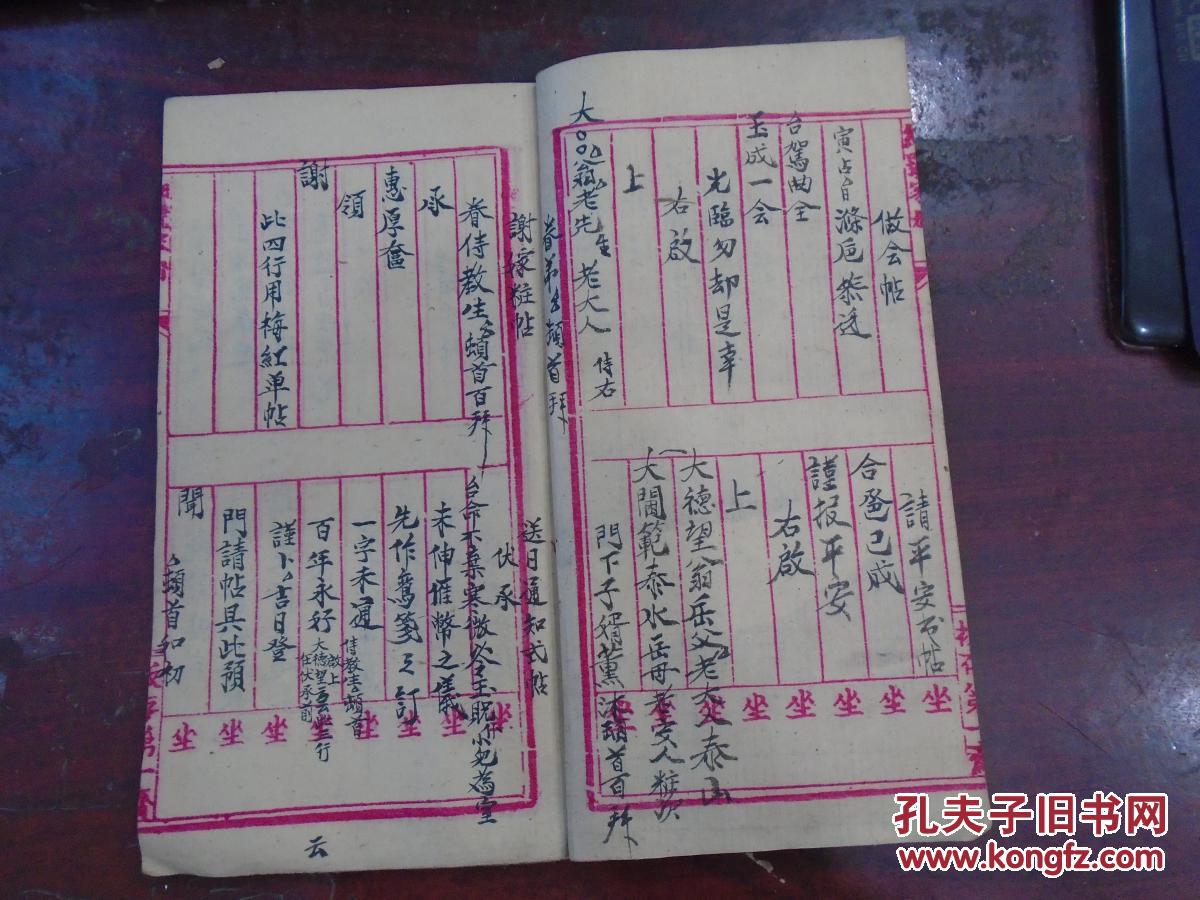 做会帖
寅占自滌卮恭迓
台駕曲全
玉成一会
光臨勿却是幸
右啟
上
大 翁老先生 老大人 侍右
眷弟 頓首拜
請平安書帖
合巹已成
謹报平安
右啟
上
大德望翁岳父老大人泰山
大閫範泰水岳母老安人粧次
門下子婿薰沐頓首百拜
謝嫁粧帖
眷侍教生 頓首百拜
承
惠厚奩
領
謝
此四行用梅紅单帖
送日通知式帖
伏承
台命不棄寒微 令玉貺 小兒為室
未伸催幣之儀
先作鸞箋之訂
一字禾通
侍教生 頓首
百年永好
啟上
大德望云云此三行
在伏承前
謹卜 吉日登
門請帖具此預
聞
頓首初
云
坐坐坐坐坐坐
坐坐坐坐坐坐
孔夫子旧书网
www.kongfz.com